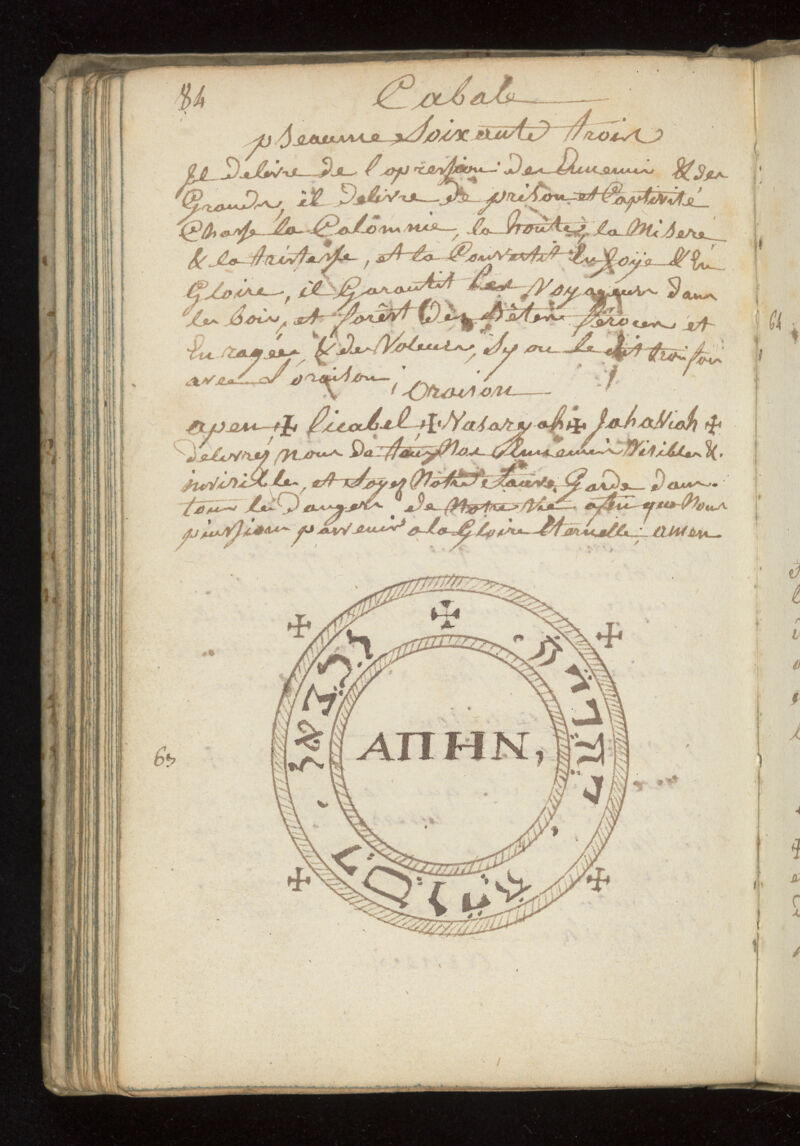 84
Cabale
pseaume Soixante trois
Il delivre de l'opression des Ennemis & des
Grands, il delivre de prison et Captivité
Chasse la Calomnie, la honte, la Misere
& la tristesse, et la Convertit En joÿe & En
Gloire, il Garantit les Voyageurs dans
les bois, et forêst des Bêtes féroces et
Enragées, & de Voleurs, sy on le dit trois fois
avec L'oraison;
Oraison
apen ✠ licabel ✠ Nasaryah ✠ Jahaviah ✠
delivrez nous de tous Nos Ennemis Visibles &
invisibles, et Soyez Notre Sauve Garde dans
tous les dangers de Notre Vie afin que Nous
puissions parvenir a la Gloire Eternelle, amen
63
ΑΠΗΝ,
64